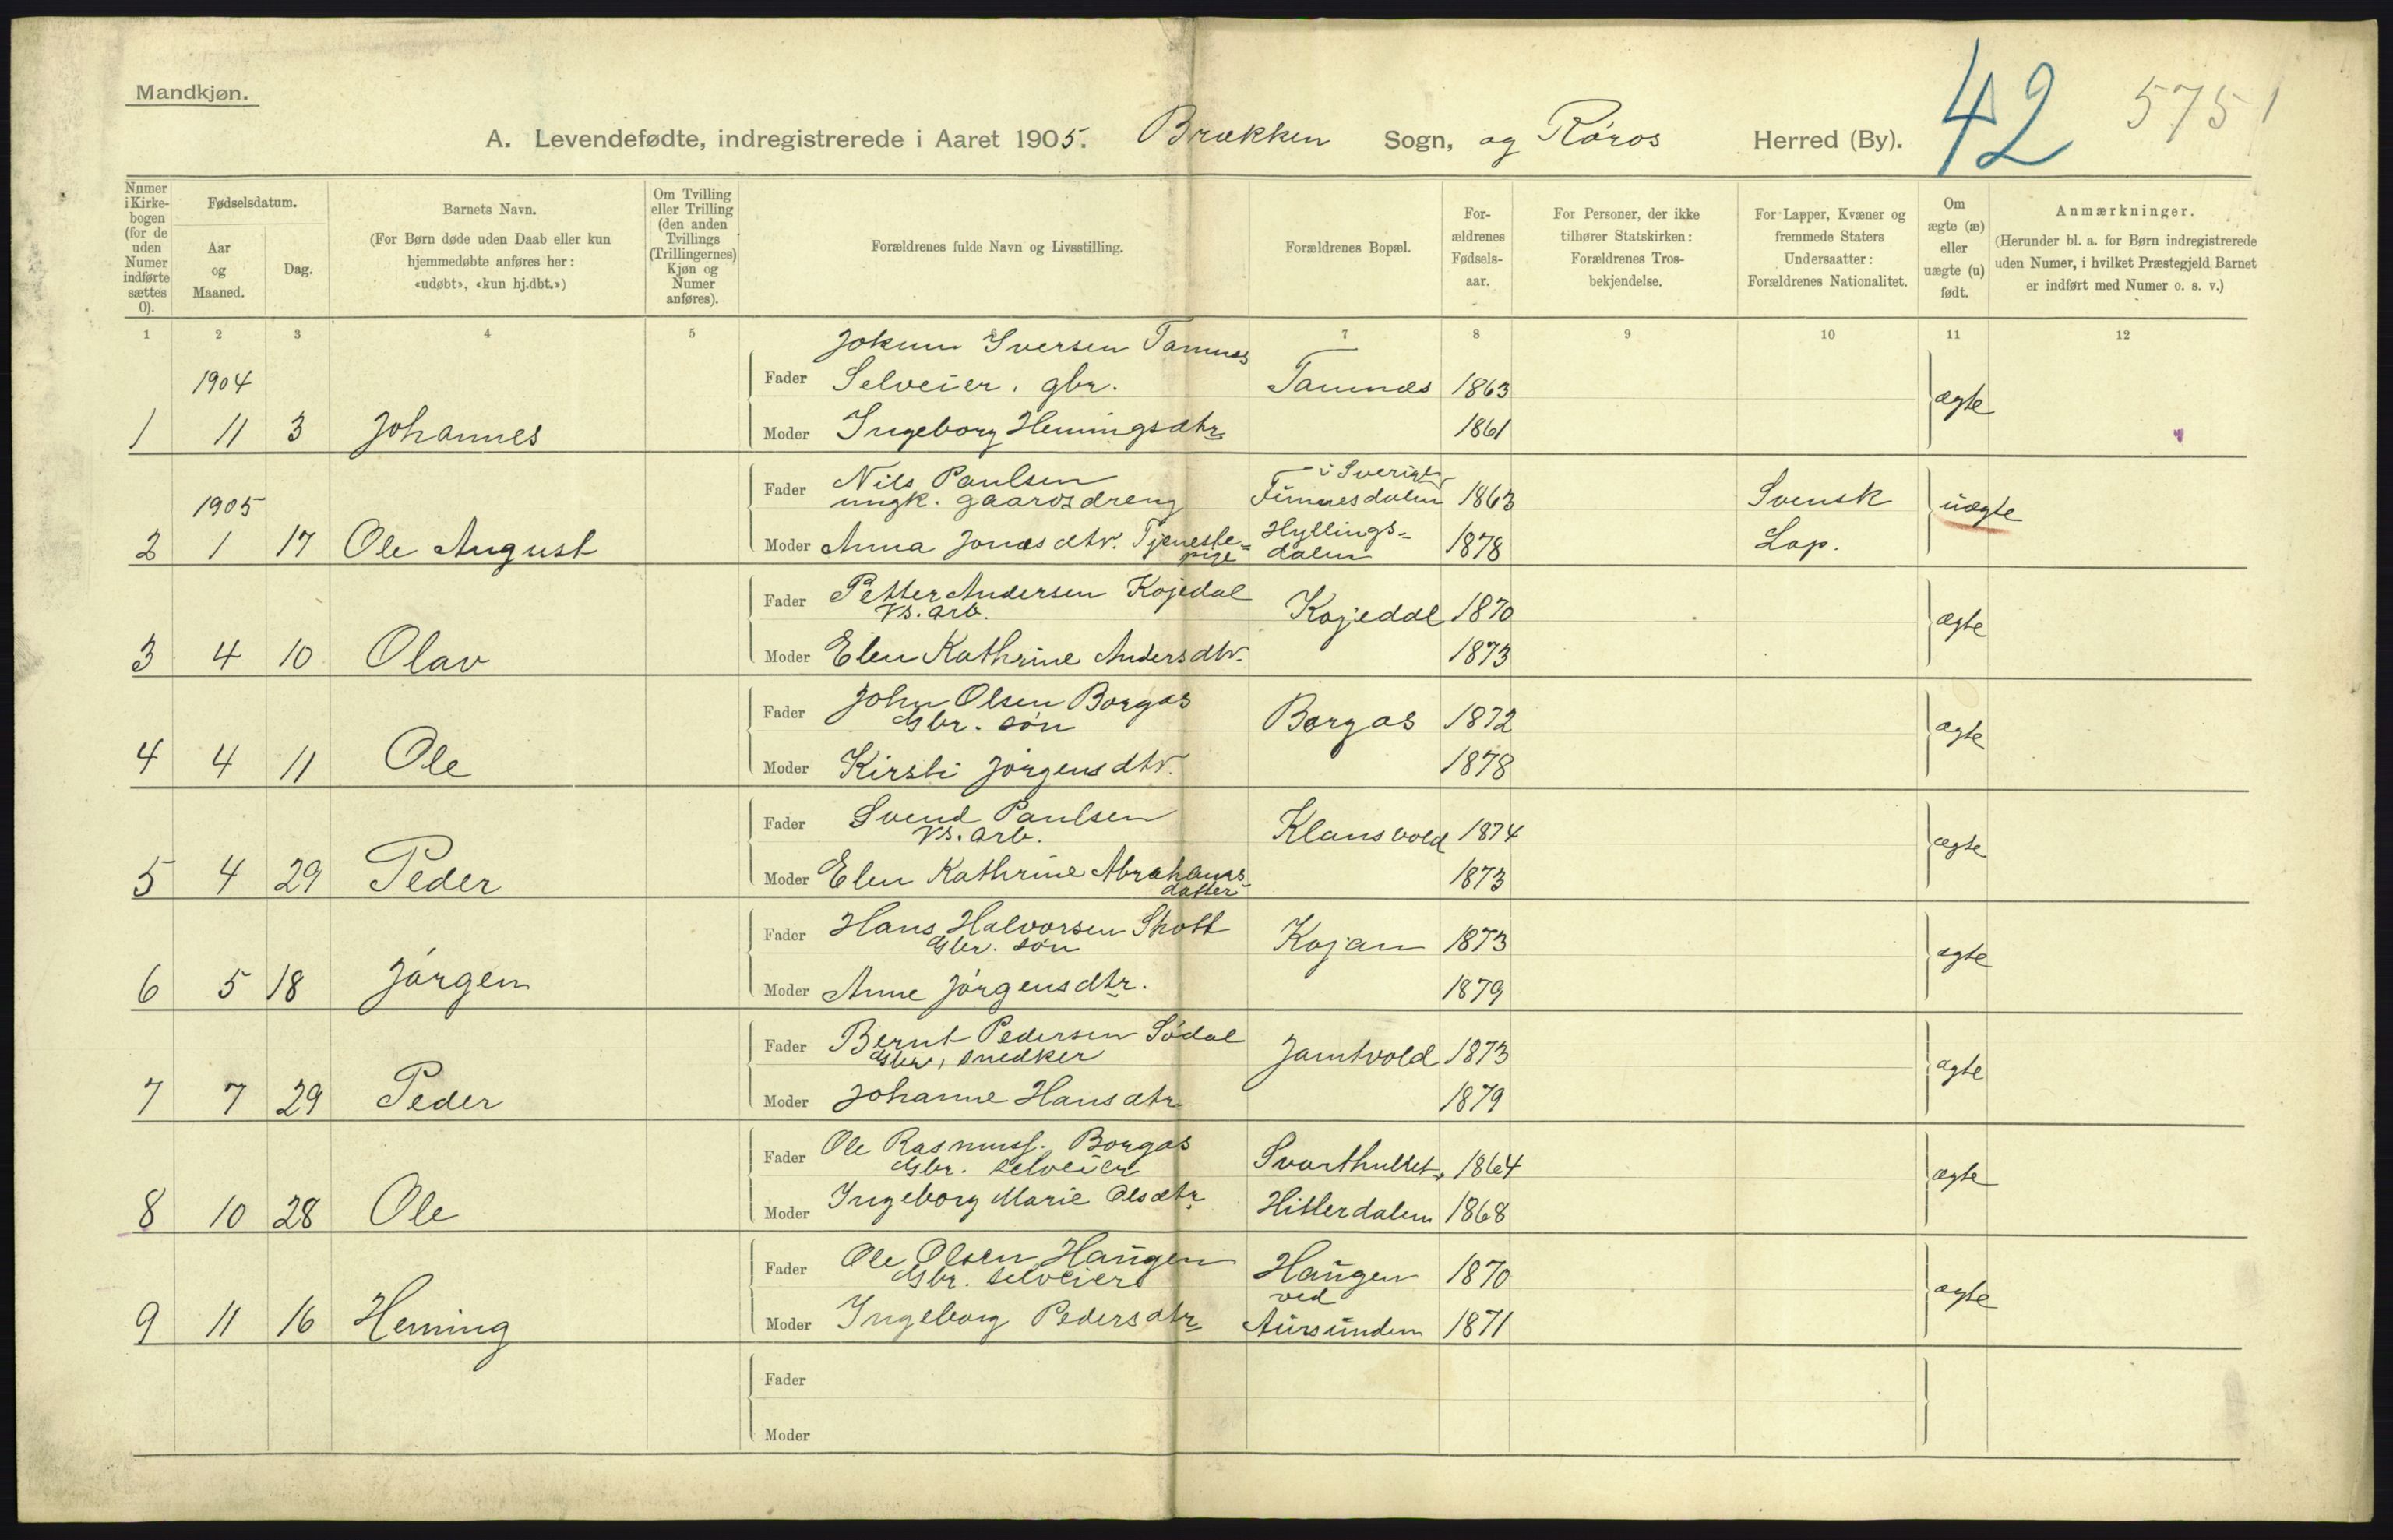 Mandkjøn.
42 5751
A. Levendefødte, indregistrerede i Aaret 1905. Brækken Sogn, og Røros Herred (By).
Numer i Kirke-bogen (for de uden Numer indførte sættes 0).
Fødselsdatum.
Aar og Maaned.
Dag.
Barnets Navn.
(For Børn døde uden Daab eller kun hjemmedøbte anføres her: «udøbt», «kun hj.dbt.»)
Om Tvilling eller Trilling (den anden Tvillings (Trillingernes) Kjøn og Numer anføres).
Forældrenes fulde Navn og Livsstilling.
Forældrenes Bopæl.
For-ældrenes Fødsels-aar.
For Personer, der ikke tilhører Statskirken: Forældrenes Tros-bekjendelse.
For Lapper, Kvæner og fremmede Staters Undersaatter: Forældrenes Nationalitet.
Om ægte (æ) eller uægte (u) født.
Anmærkninger.
(Herunder bl. a. for Børn indregistrerede uden Numer, i hvilket Præstegjeld Barnet er indført med Numer o. s. v.)
1 2 3 4 5 6 7 8 9 10 11 12
Jokum Iversen Tamnes
1904 Fader Selveier. gbr. Tamnes 1863
1 11 3 Johannes Moder Ingeborg Hemingsdtr 1861 ægte
Fader Nils Paulsen i Sverige
1905 ungk. gaardsdreng 1863 Svensk uægte
2 1 17 Ole August Moder Anna Jonasdtr. Tjeneste= Hyllings= 1878 Lap.
pige dalen
Fader Petter Andersen Kojedal
Vs. arb. Kojedal 1870 ægte
3 4 10 Olav Moder Elen Kathrine Andersdtr. 1873
Fader John Olsen Borgos
Gbr. søn Borgos 1872 ægte
4 4 11 Ole Moder Kirsti Jørgensdtr. 1878
Fader Svend Paulsen
Vs. arb. Klausvold 1874 ægte
5 4 29 Peder Moder Elen Kathrine Abrahams 1873
datter
Fader Hans Halvorsen Skott
Gbr. søn Kojan 1873 ægte
6 5 18 Jørgen Moder Anne Jørgensdtr. 1879
Fader Bernt Pedersen Sødal
Gbr, snedker Jamtvold 1873 ægte
7 7 29 Peder Moder Johanne Hansdtr 1879
Fader Ole Rasmuss. Borgos
Gbr. selveier Svarthullet, 1864 ægte
8 10 28 Ole Moder Ingeborg Marie Olsdtr Hitterdalen 1868
Fader Ole Olsen Haugen
Gbr. selveier Haugen 1870 ægte
ved
9 11 16 Heming Moder Ingeborg Pedersdtr Aursunden 1871
Fader
Moder